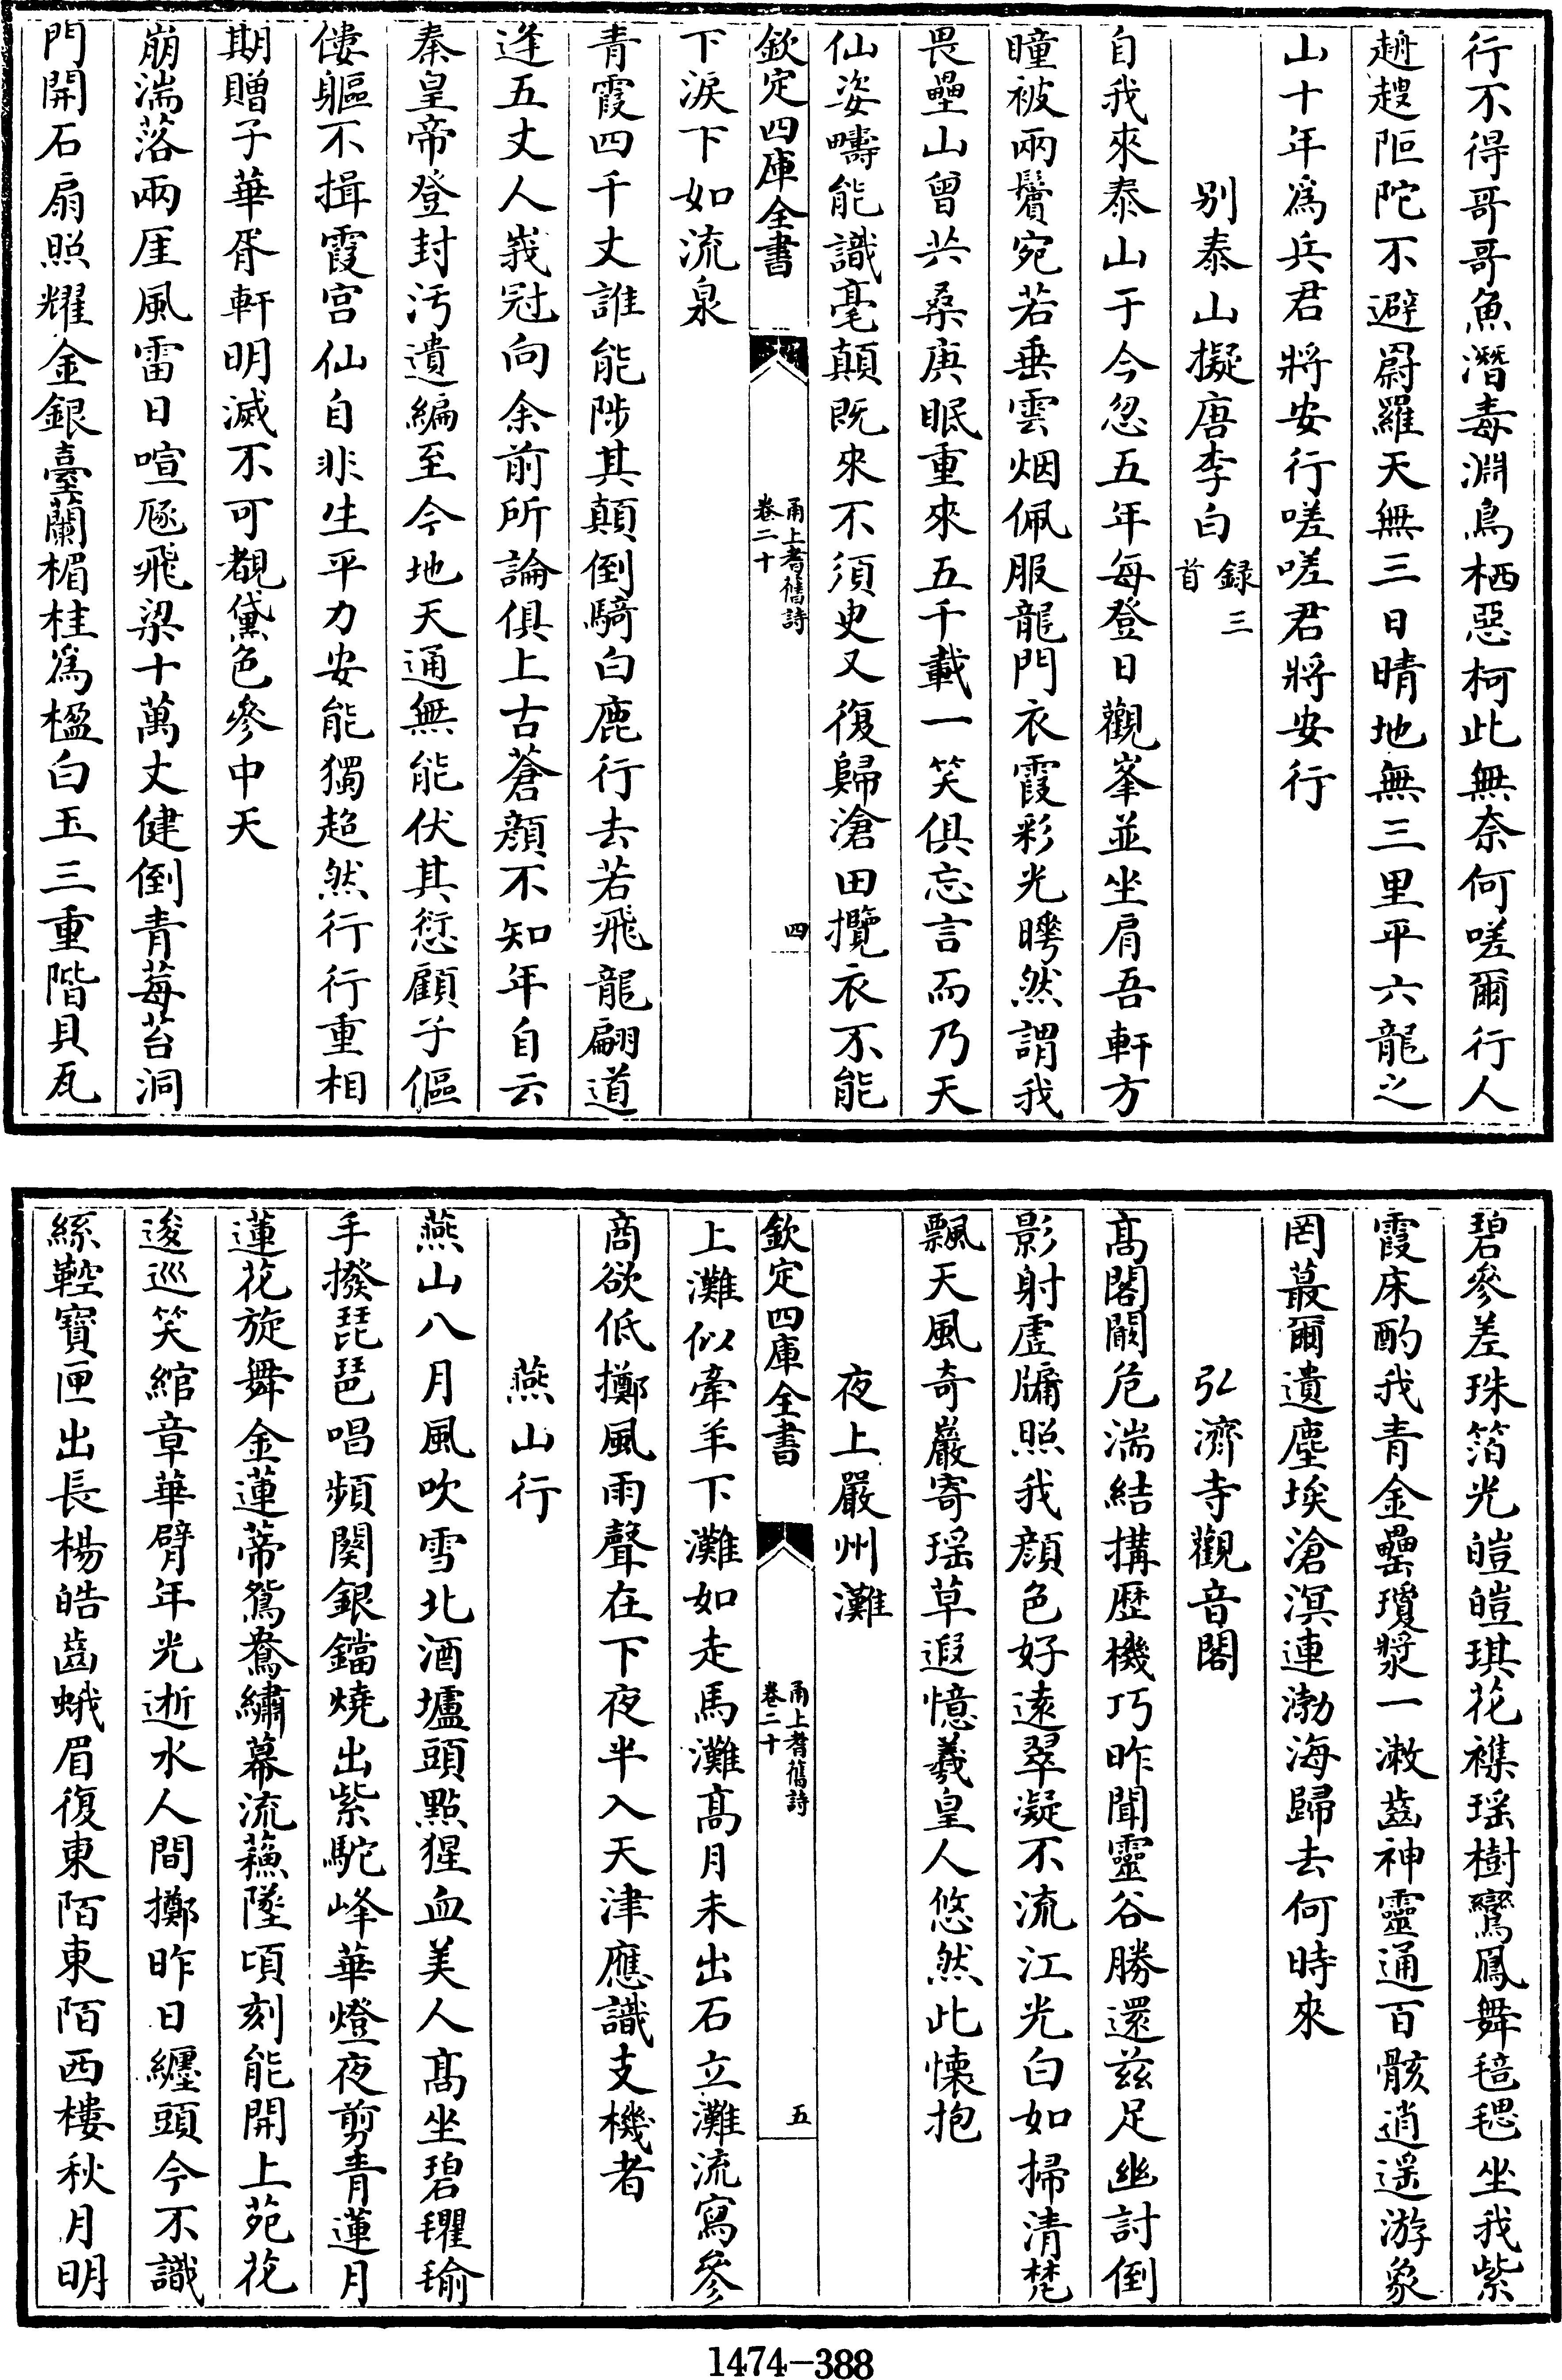 行不得哥哥魚潛毒淵鳥栖惡柯此無奈何嗟爾行人
趦趄陁陀不避罻羅天無三日晴地無三里平六龍之
山十年為兵君將安行嗟嗟君將安行
别泰山擬唐李白錄三首
自我來泰山于今忽五年每登日觀峯並坐肩吾軒方
瞳被兩鬢宛若垂雲烟佩服龍門衣霞彩光曄然謂我
畏壘山曾共桑庚眠重來五千載一笑俱忘言而乃天
仙姿疇能識毫顛既來不須臾又復歸滄田攬衣不能
欽定四庫全書
甬上耆舊詩
卷二十
四
下淚下如流泉
青霞四千丈誰能陟其顛倒騎白鹿行去若飛龍翩道
逢五丈人峩冠向余前所論俱上古蒼顔不知年自云
秦皇帝登封污遺編至今地天通無能伏其愆顧予傴
僂軀不揖霞宫仙自非生平力安能獨超然行行重相
期贈子華胥軒明滅不可覩黛色參中天
崩湍落兩厓風雷日喧豗飛梁十萬丈健倒青莓苔洞
門開石扇照耀金銀臺蘭楣桂為楹白玉三重階貝瓦
碧參差珠箔光皚皚琪花襍瑶樹鸞鳳舞毰毸坐我紫
霞床酌我青金罍瓊漿一漱齒神靈通百骸逍遥游象
罔蕞爾遺塵埃滄溟連渤海歸去何時來
弘濟寺觀音閣
髙閣闞危湍結搆歴機巧昨聞靈谷勝還兹足幽討倒
影射虚牖照我顔色好遠翠凝不流江光白如掃清梵
飄天風奇巖寄瑶草遐憶羲皇人悠然此懐抱
夜上嚴州灘
欽定四庫全書
甬上耆舊詩
卷二十
五
上灘似牽羊下灘如走馬灘髙月未出石立灘流寫參
商欲低擲風雨聲在下夜半入天津應識支機者
燕山行
燕山八月風吹雪北酒壚頭點猩血美人髙坐碧氍毹
手撥琵琶唱頻闋銀鐺燒出紫駝峰華燈夜剪青蓮月
蓮花旋舞金蓮蒂鴛鴦繡幕流蘓墜頃刻能開上苑花
逡巡笑綰章華臂年光逝水人間擲昨日纒頭今不識
絲鞚寶匣出長楊皓齒蛾眉復東陌東陌西樓秋月明
1474-388